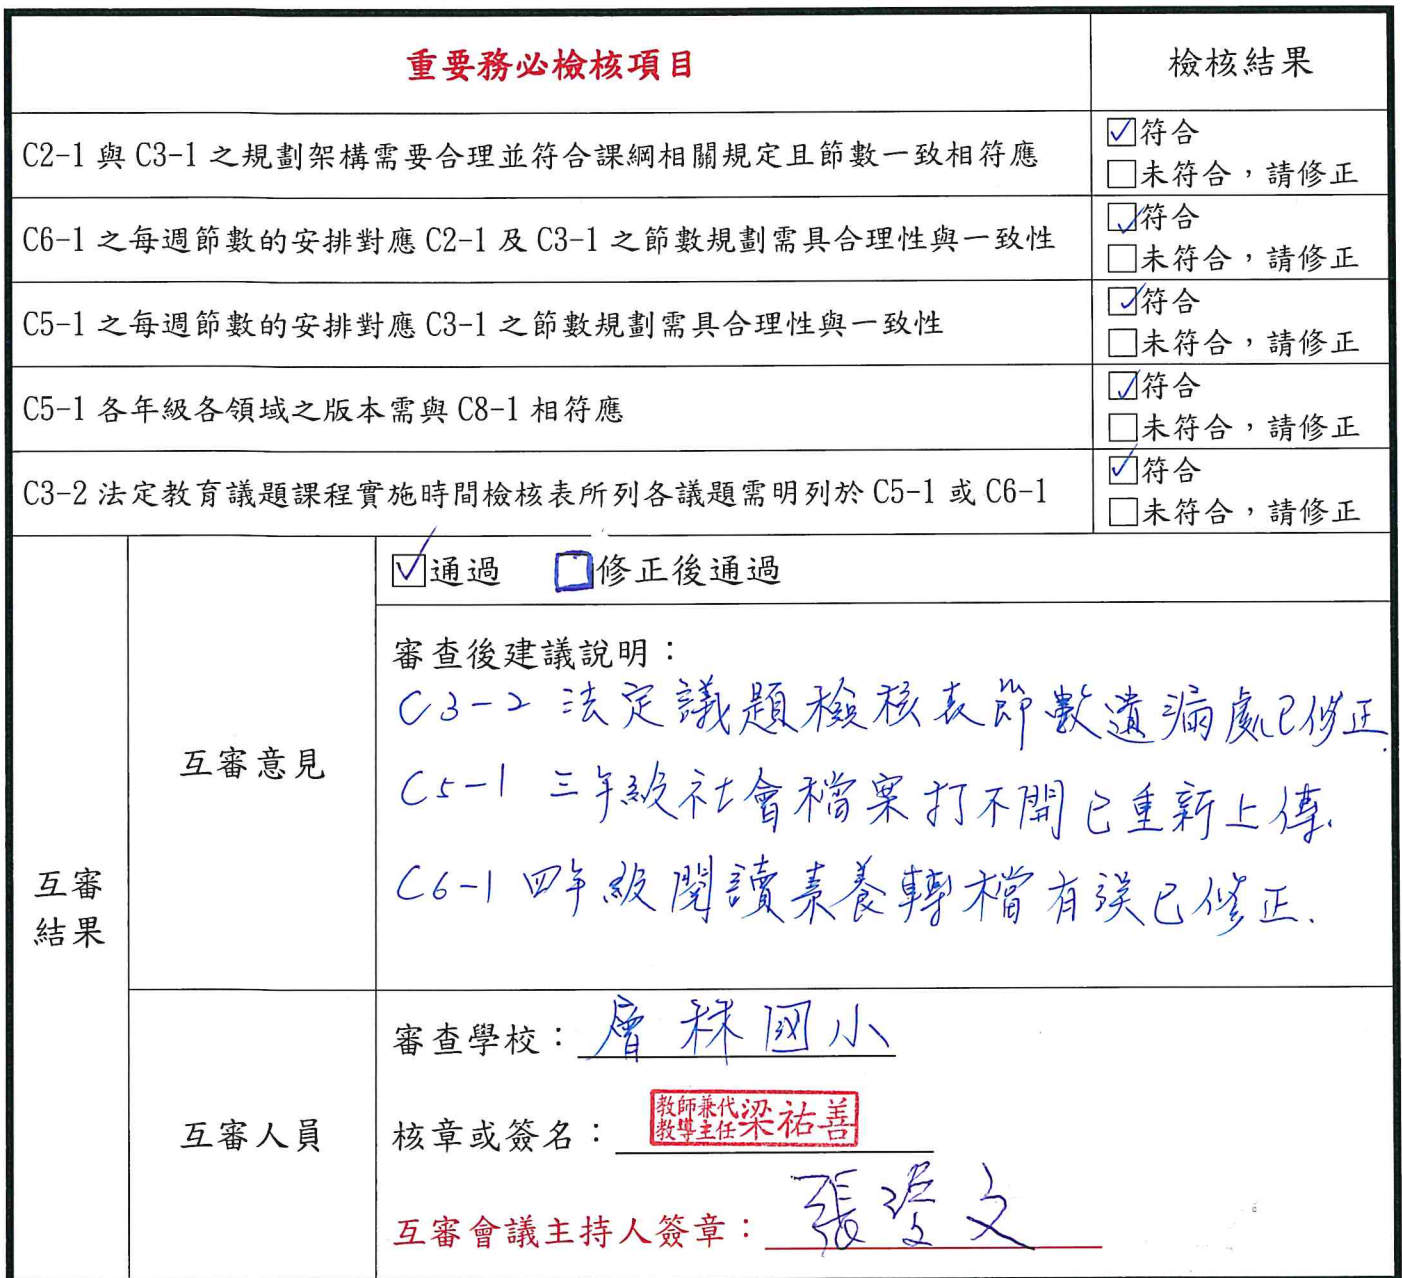 重要務必檢核項目
檢核結果
C2-1 與 C3-1 之規劃架構需要合理並符合課綱相關規定且節數一致相符應
☑符合
□未符合，請修正
C6-1 之每週節數的安排對應 C2-1 及 C3-1 之節數規劃需具合理性與一致性
☑符合
□未符合，請修正
C5-1 之每週節數的安排對應 C3-1 之節數規劃需具合理性與一致性
☑符合
□未符合，請修正
C5-1 各年級各領域之版本需與 C8-1 相符應
☑符合
□未符合，請修正
C3-2 法定教育議題課程實施時間檢核表所列各議題需明列於 C5-1 或 C6-1
☑符合
□未符合，請修正
互審
結果
互審意見
☑通過 □修正後通過
審查後建議說明：
C3-2 法定議題檢核表節數遺漏處已修正.
C5-1 三年級社會檔案打不開已重新上傳.
C6-1 四年級閱讀素養轉檔有誤已修正.
互審人員
審查學校：林國小
核章或簽名：
教師兼代
教導主任
梁祐善
互審會議主持人簽章：張文